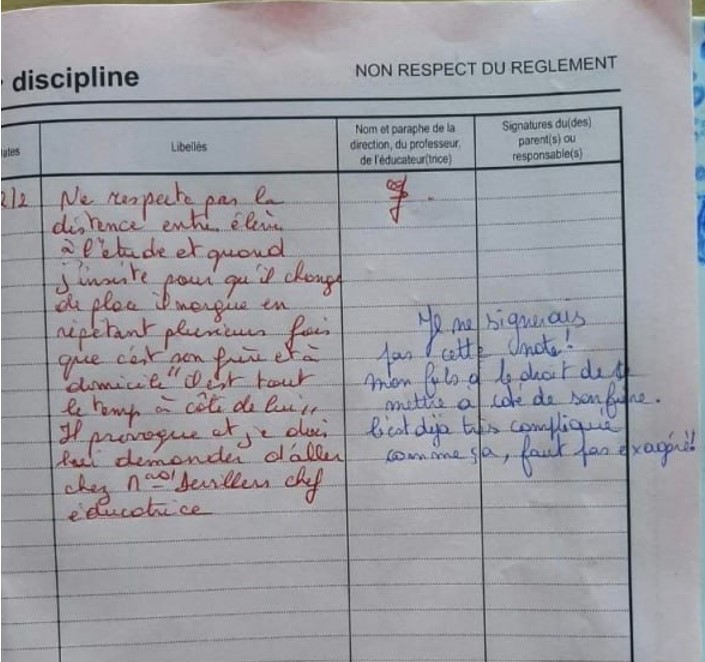 discipline
NON RESPECT DU REGLEMENT
ates
Libellés
Nom et paraphe de la
direction, du professeur,
de l'éducateur(trice)
Signatures du(des)
parent(s) ou
responsable(s)
2/2
Ne respecte pas la
distence entre élève
à l'etude et quand
j'insiste pour qu'il change
de place il norgue en
répètant plusieurs fois
que c'est son frère et à
domicile "il est tout
le temp à côté de lui"
Il provoque et je dois
lui demander d'aller
chez chef
éducatrice
Je ne signerais
pas cette note!
mon fils a le droit de se
mettre a coté de son frère.
C'est déja très compliqué
comme ça, faut pas exagéré!